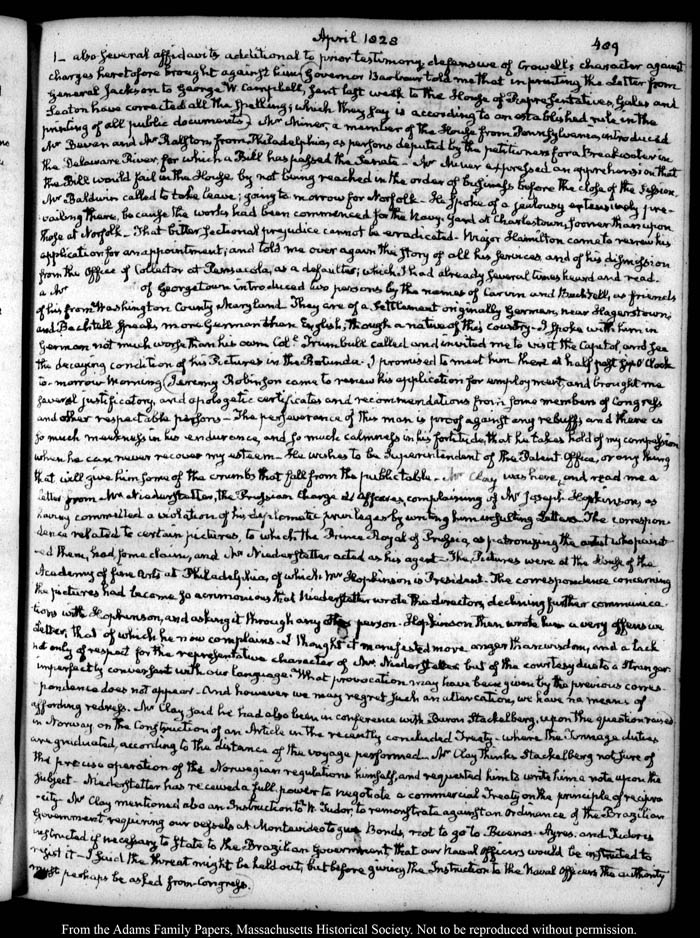 April 1828
489
1– also several affidavits additional to prior testimony, defensive of Crowell's character against
charges heretofore brought against him (Governor Barbour told me that in printing the Letter from
General Jackson to George W. Campbell, sent last week to the House of Representatives, Gales and
Seaton have corrected all the spelling; which they say is according to an established rule in the
printing of all public documents.) Mr Miner, a member of the House from Pennsylvania, introduced
Mr Bevan and Mr Ralston, from Philadelphia, as persons deputed by the petitioners for a Breakwater in
the Delaware River, for which a Bill has passed the Senate. Mr Miner expressed an apprehension that
the Bill would fail in the House, by not being reached in the order of business before the close of the Session.
Mr Baldwin called to take leave; going to morrow for Norfolk. He spoke of a jealousy extensively pre-
vailing there, because the works had been commenced for the Navy-Yard at Charlestown, sooner than upon
those at Norfolk – That bitter sectional prejudice cannot be eradicated. Major Hamilton came to renew his
application for an appointment; and told me over again the story of all his services, and of his dismission
from the Office of Collector at Pensacola, as a defaulter; which I had already several times heard and read.
a Mr of Georgetown introduced two persons by the names of Carvin and Bachtell, as friends
of his from Washington County Maryland. They are of a settlement originally German, near Hagerstown,
and Bachtell speaks more German than English; though a native of this country. I spoke with him in
German not much worse than his own Colo. Trumbull called and invited me to visit the Capitol and see
the decaying condition of his Pictures in the Rotunda. I promised to meet him there at half past O'Clock
to-morrow Morning (Jeremy Robinson came to renew his application for employment, and brought me
several justificatory, and apologetic certificates and recommendations from some members of Congress
and other respectable persons – The perseverance of this man is proof against any rebuffs and there is
so much meekness in his endurance, and so much calmness in his fortitude, that he takes hold of my compassion
when he can never recover my esteem – He wishes to be Superintendent of the Patent Office, or any thing
that will give him some of the crumbs that fall from the public table. Mr Clay was here, and read me a
letter from Mr Niederstetter, the Prussian Chargé d'Affaires, complaining of Mr Joseph Hopkinson, as
having committed a violation of his diplomatic privileges by writing him insulting Letters. The correspon-
dence related to certain pictures, to which the Prince Royal of Prussia, as patronizing the artist who paint-
ed them, had some claim, and Mr Niederstetter acted as his agent – The Pictures were at the House of the
Academy of fine Arts at Philadelphia, of which Mr Hopkinson is President. The correspondence concerning
the pictures had become so acrimonious that Niederstetter wrote the directors, declining further communica-
tions with Hopkinson, and asking it through any other person. Hopkinson then wrote him a very offensive
Letter, that of which he now complains. I thought it manifested more anger than wisdom, and a lack
not only of respect for the representative character of Mr Niederstetter but of the courtesy due to a Stranger
imperfectly conversant with our language. What provocation may have been given by the previous corres-
pondence does not appear. And however we may regret such an altercation, we have no means of
affording redress. Mr Clay said he had also been in conference with Baron Stackelberg, upon the question raised
in Norway on the Construction of an Article in the recently concluded Treaty – where the Tonnage duties
are graduated, according to the distance of the voyage performed. Mr Clay thinks Stackelberg not sure of
the precise operation of the Norwegian regulations himself, and requested him to write him a note upon the
subject. Niederstetter has received a full power to negotiate a commercial Treaty on the principle of recipro-
city. Mr Clay mentioned also an Instruction to W. Tudor, to remonstrate against an Ordinance of the Brazilian
Government requiring our vessels at Montevideo to give Bonds, not to go to Buenos-Ayres, and Tudor is
instructed if necessary to state to the Brazilian Government, that our Naval Officers would be instructed to
resist it – I said the threat might be held out, but before giving the Instruction to the Naval Officers the authority
must perhaps be asked from Congress.)
From the Adams Family Papers, Massachusetts Historical Society. Not to be reproduced without permission.